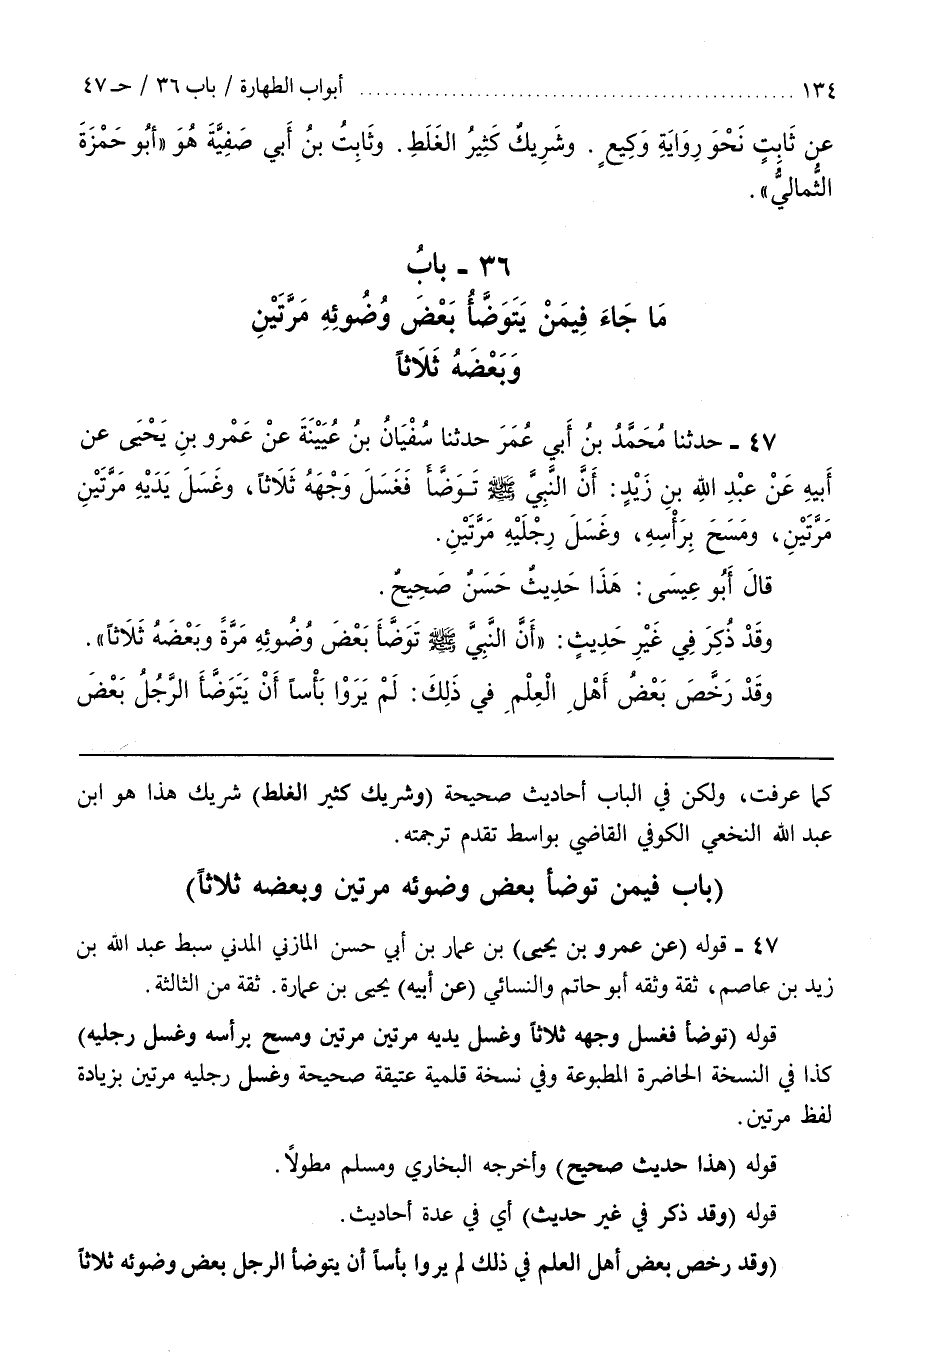 ١٣٤ ........................................ أبواب الطهارة / باب ٣٦ / حـ ٤٧
عن ثَابِتٍ نَحْوَ رِوَايَةِ وَكِيعٍ . وشَرِيكٌ كَثِيرُ الغَلَطِ. وثَابِتُ بنُ أَبي صَفِيَّةَ هُوَ «أبُو حَمْزَةَ
الثُّمالِيُّ».
٣٦ ـ بابُ
مَا جَاءَ فِيمَنْ يَتَوَضَّأُ بَعْضَ وُضُوئِهِ مَرَّتَيْنِ
وَبَعْضَهُ ثَلَاثاً
٤٧ ـ حدثنا مُحَمَّدُ بنُ أَبي عُمَرَ حدثنا سُفْيَانُ بنُ عُيَيْنَةَ عنْ عَمْرِو بنِ يَحْيَى عن
أَبيهِ عَنْ عبْدِ اللهِ بنِ زَيْدٍ: أَنَّ النَّبِيَّ ﷺ تَوَضَّأَ فَغَسَلَ وَجْهَهُ ثَلَاثاً، وغَسَلَ يَدَيْهِ مَرَّتَيْنِ
مَرَّتَيْنِ، ومَسَحَ بِرَأْسِهِ، وغَسَلَ رِجْلَيْهِ مَرَّتَيْنِ.
قالَ أَبُو عِيسَى: هَذَا حَدِيثٌ حَسَنٌ صَحِيحٌ.
وقَدْ ذُكِرَ فِي غَيْرِ حَدِيثٍ: «أَنَّ النَّبِيَّ ﷺ تَوَضَّأَ بَعْضَ وُضُوئِهِ مَرَّةً وبَعْضَهُ ثَلَاثاً».
وقَدْ رَخَّصَ بَعْضُ أَهْلِ الْعِلْمِ في ذَلِكَ: لَمْ يَرَوْا بَأْساً أَنْ يَتَوَضَّأَ الرَّجُلُ بَعْضَ
كما عرفت، ولكن في الباب أحاديث صحيحة (وشريك كثير الغلط) شريك هذا هو ابن
عبد الله النخعي الكوفي القاضي بواسط تقدم ترجمته.
(باب فيمن توضأ بعض وضوئه مرتين وبعضه ثلاثاً)
٤٧ ـ قوله (عن عمرو بن يحيى) بن عمار بن أبي حسن المازني المدني سبط عبد الله بن
زيد بن عاصم، ثقة وثقه أبو حاتم والنسائي (عن أبيه) يحيى بن عمارة. ثقة من الثالثة.
قوله (توضأ فغسل وجهه ثلاثاً وغسل يديه مرتين مرتين ومسح برأسه وغسل رجليه)
كذا في النسخة الحاضرة المطبوعة وفي نسخة قلمية عتيقة صحيحة وغسل رجليه مرتين بزيادة
لفظ مرتين.
قوله (هذا حديث صحيح) وأخرجه البخاري ومسلم مطولاً.
قوله (وقد ذكر في غير حديث) أي في عدة أحاديث.
(وقد رخص بعض أهل العلم في ذلك لم يروا بأساً أن يتوضأ الرجل بعض وضوئه ثلاثاً